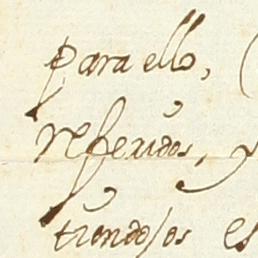 para ello, (
referidos, y
tiendolos es